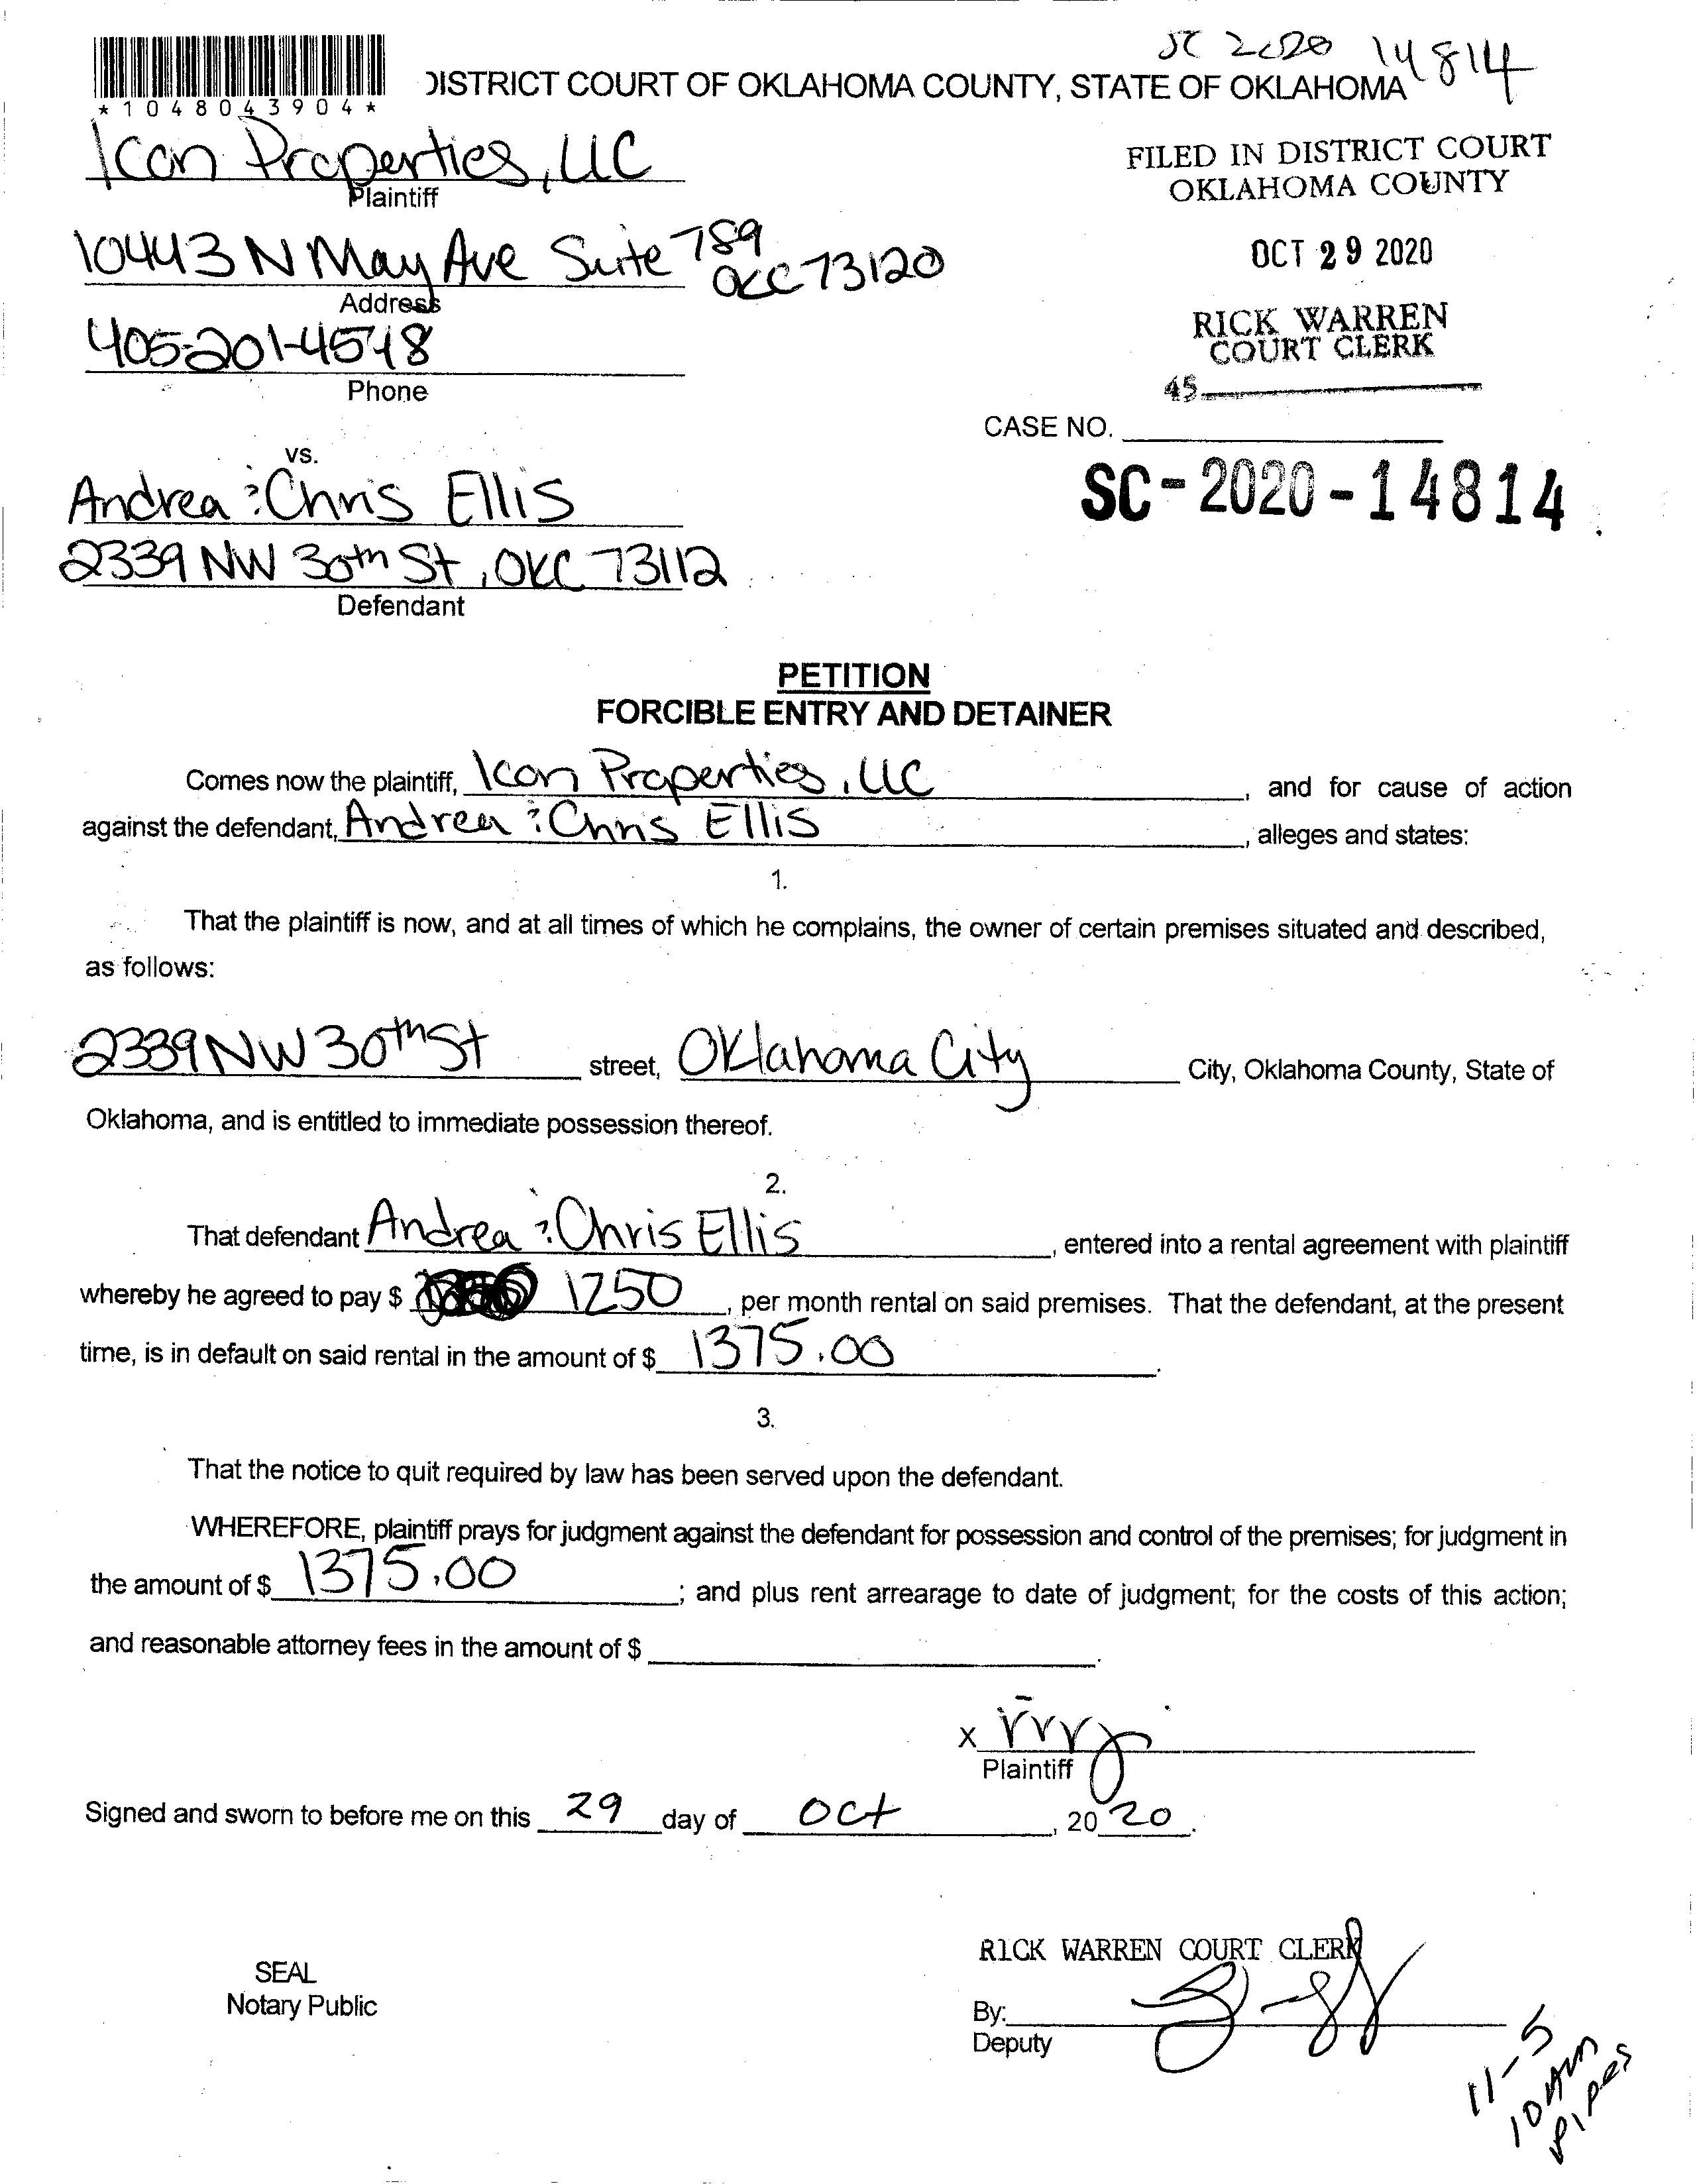 SC 2020 14814
*1048043904*
DISTRICT COURT OF OKLAHOMA COUNTY, STATE OF OKLAHOMA
Icon Properties, LLC
Plaintiff
FILED IN DISTRICT COURT
OKLAHOMA COUNTY
10443 N May Ave Suite 789
OKC 73120
Address
OCT 29 2020
405-201-4518
Phone
RICK WARREN
COURT CLERK
45
CASE NO.
SC-2020-14814
vs.
Andrea & Chris Ellis
2339 NW 30th St, OKC 73112
Defendant
PETITION
FORCIBLE ENTRY AND DETAINER
Comes now the plaintiff, Icon Properties, LLC, and for cause of action
against the defendant, Andrea & Chris Ellis, alleges and states:
1.
That the plaintiff is now, and at all times of which he complains, the owner of certain premises situated and described,
as follows:
2339 NW 30th St street, Oklahoma City City, Oklahoma County, State of
Oklahoma, and is entitled to immediate possession thereof.
2.
That defendant Andrea & Chris Ellis, entered into a rental agreement with plaintiff
whereby he agreed to pay $ 1250, per month rental on said premises. That the defendant, at the present
time, is in default on said rental in the amount of $ 1375.00.
3.
That the notice to quit required by law has been served upon the defendant.
WHEREFORE, plaintiff prays for judgment against the defendant for possession and control of the premises; for judgment in
the amount of $ 1375.00; and plus rent arrearage to date of judgment; for the costs of this action;
and reasonable attorney fees in the amount of $ .
X
Plaintiff
Signed and sworn to before me on this 29 day of Oct, 2020.
RICK WARREN COURT CLERK
SEAL
Notary Public
By:
Deputy
11-5
10 AM
Pipes